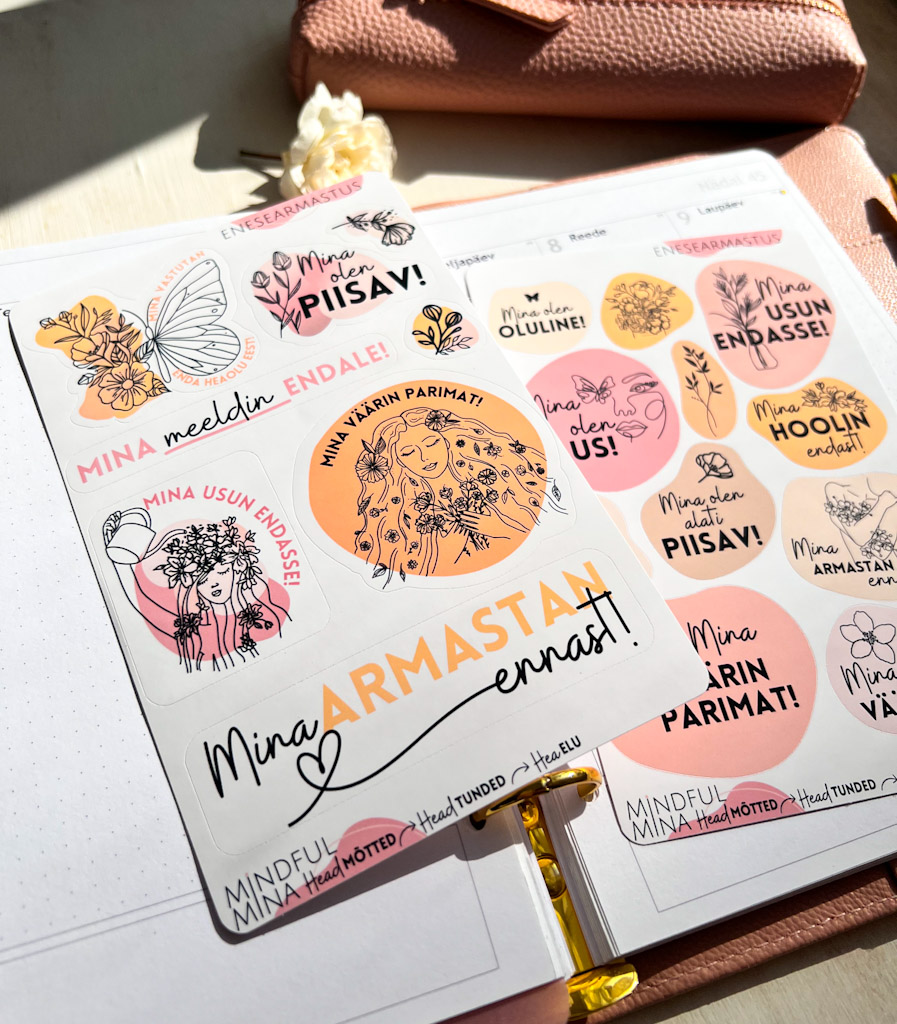 ENESEARMASTUS
MINA VASTUTAN
ENDA HEAOLU EEST!
Mina
olen
PIISAV!
MINA meeldin ENDALE!
MINA VÄÄRIN PARIMAT!
MINA USUN ENDASSE!
Mina ARMASTAN
ennast!
MINDFUL
MINA
Head MÕTTED
Head TUNDED
Hea ELU
Nädal 45
8 Reede
9 Laupäev
ENESEARMASTUS
Mina olen
OLULINE!
Mina
USUN
ENDASSE!
olen
Mina
HOOLIN
endast!
Mina olen
alati
PIISAV!
Mina
ARMASTAN
Mina
PARIMAT!
Mina
MINDFUL
MINA
Head MÕTTED
Head TUNDED